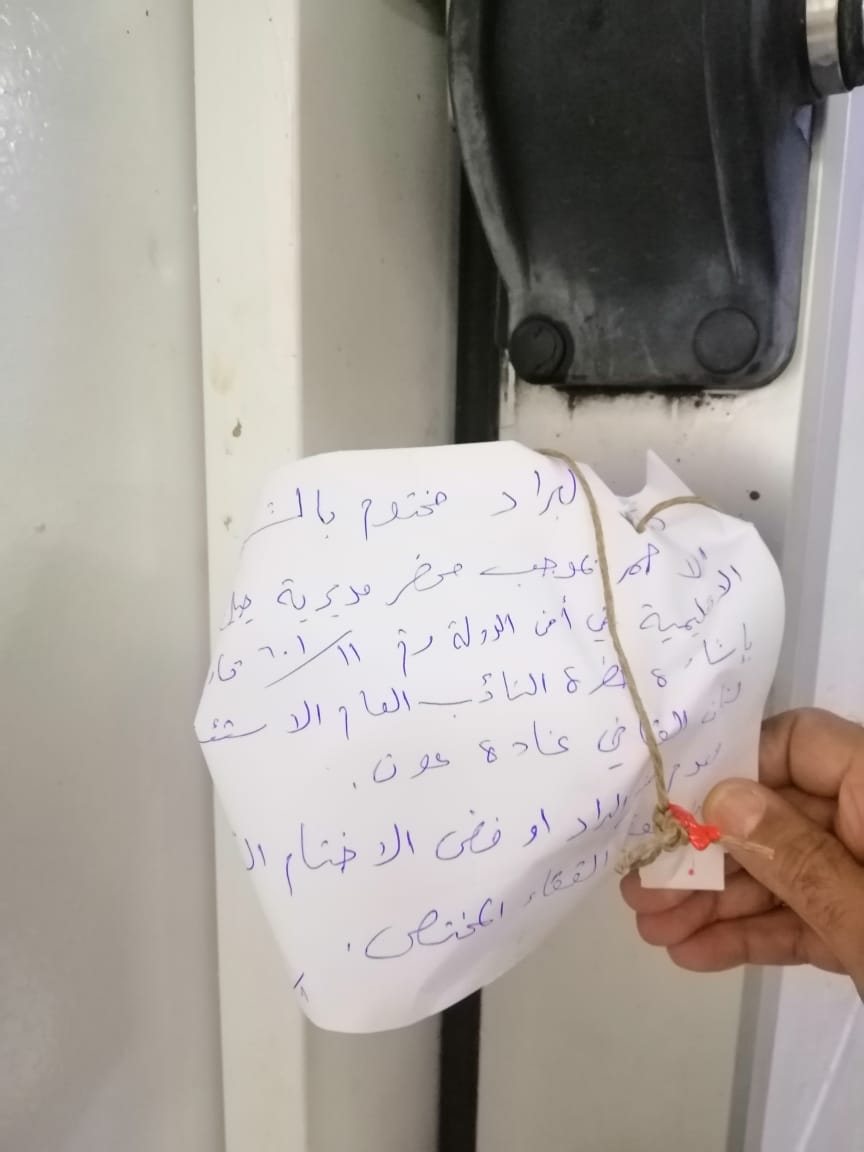 البراد مختوم بالش
الاحمر بموجب محضر مديرية جبل
الاقليمية في أمن الدولة رقم ١١/٦٠١
بإشارة حضرة النائب العام الاستئـ
القاضي غادة عون.
البراد او فض الاختام الا
القضاء المختص.